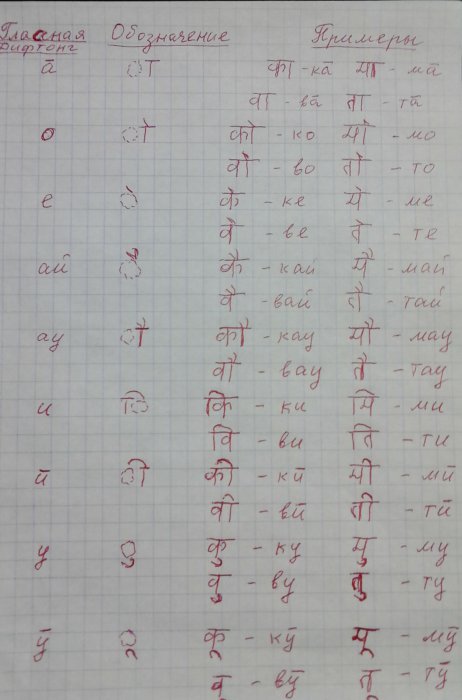 Гласная Обозначение Примеры
Дифтонг
ā ा का - кā मा - мā
वा - вā ता - тā
о ो को - ко मो - мо
वो - во तो - то
е े के - ке मे - ме
वे - ве ते - те
ай ै कै - кай मै - май
वै - вай तै - тай
ау ौ कौ - кау मौ - мау
वौ - вау तौ - тау
и ि कि - ки मि - ми
वि - ви ति - ти
ӣ ी की - кӣ मी - мӣ
वी - вӣ ती - тӣ
у ु कु - ку मु - му
वु - ву तु - ту
ӯ ू कू - кӯ मू - мӯ
वू - вӯ तू - тӯ